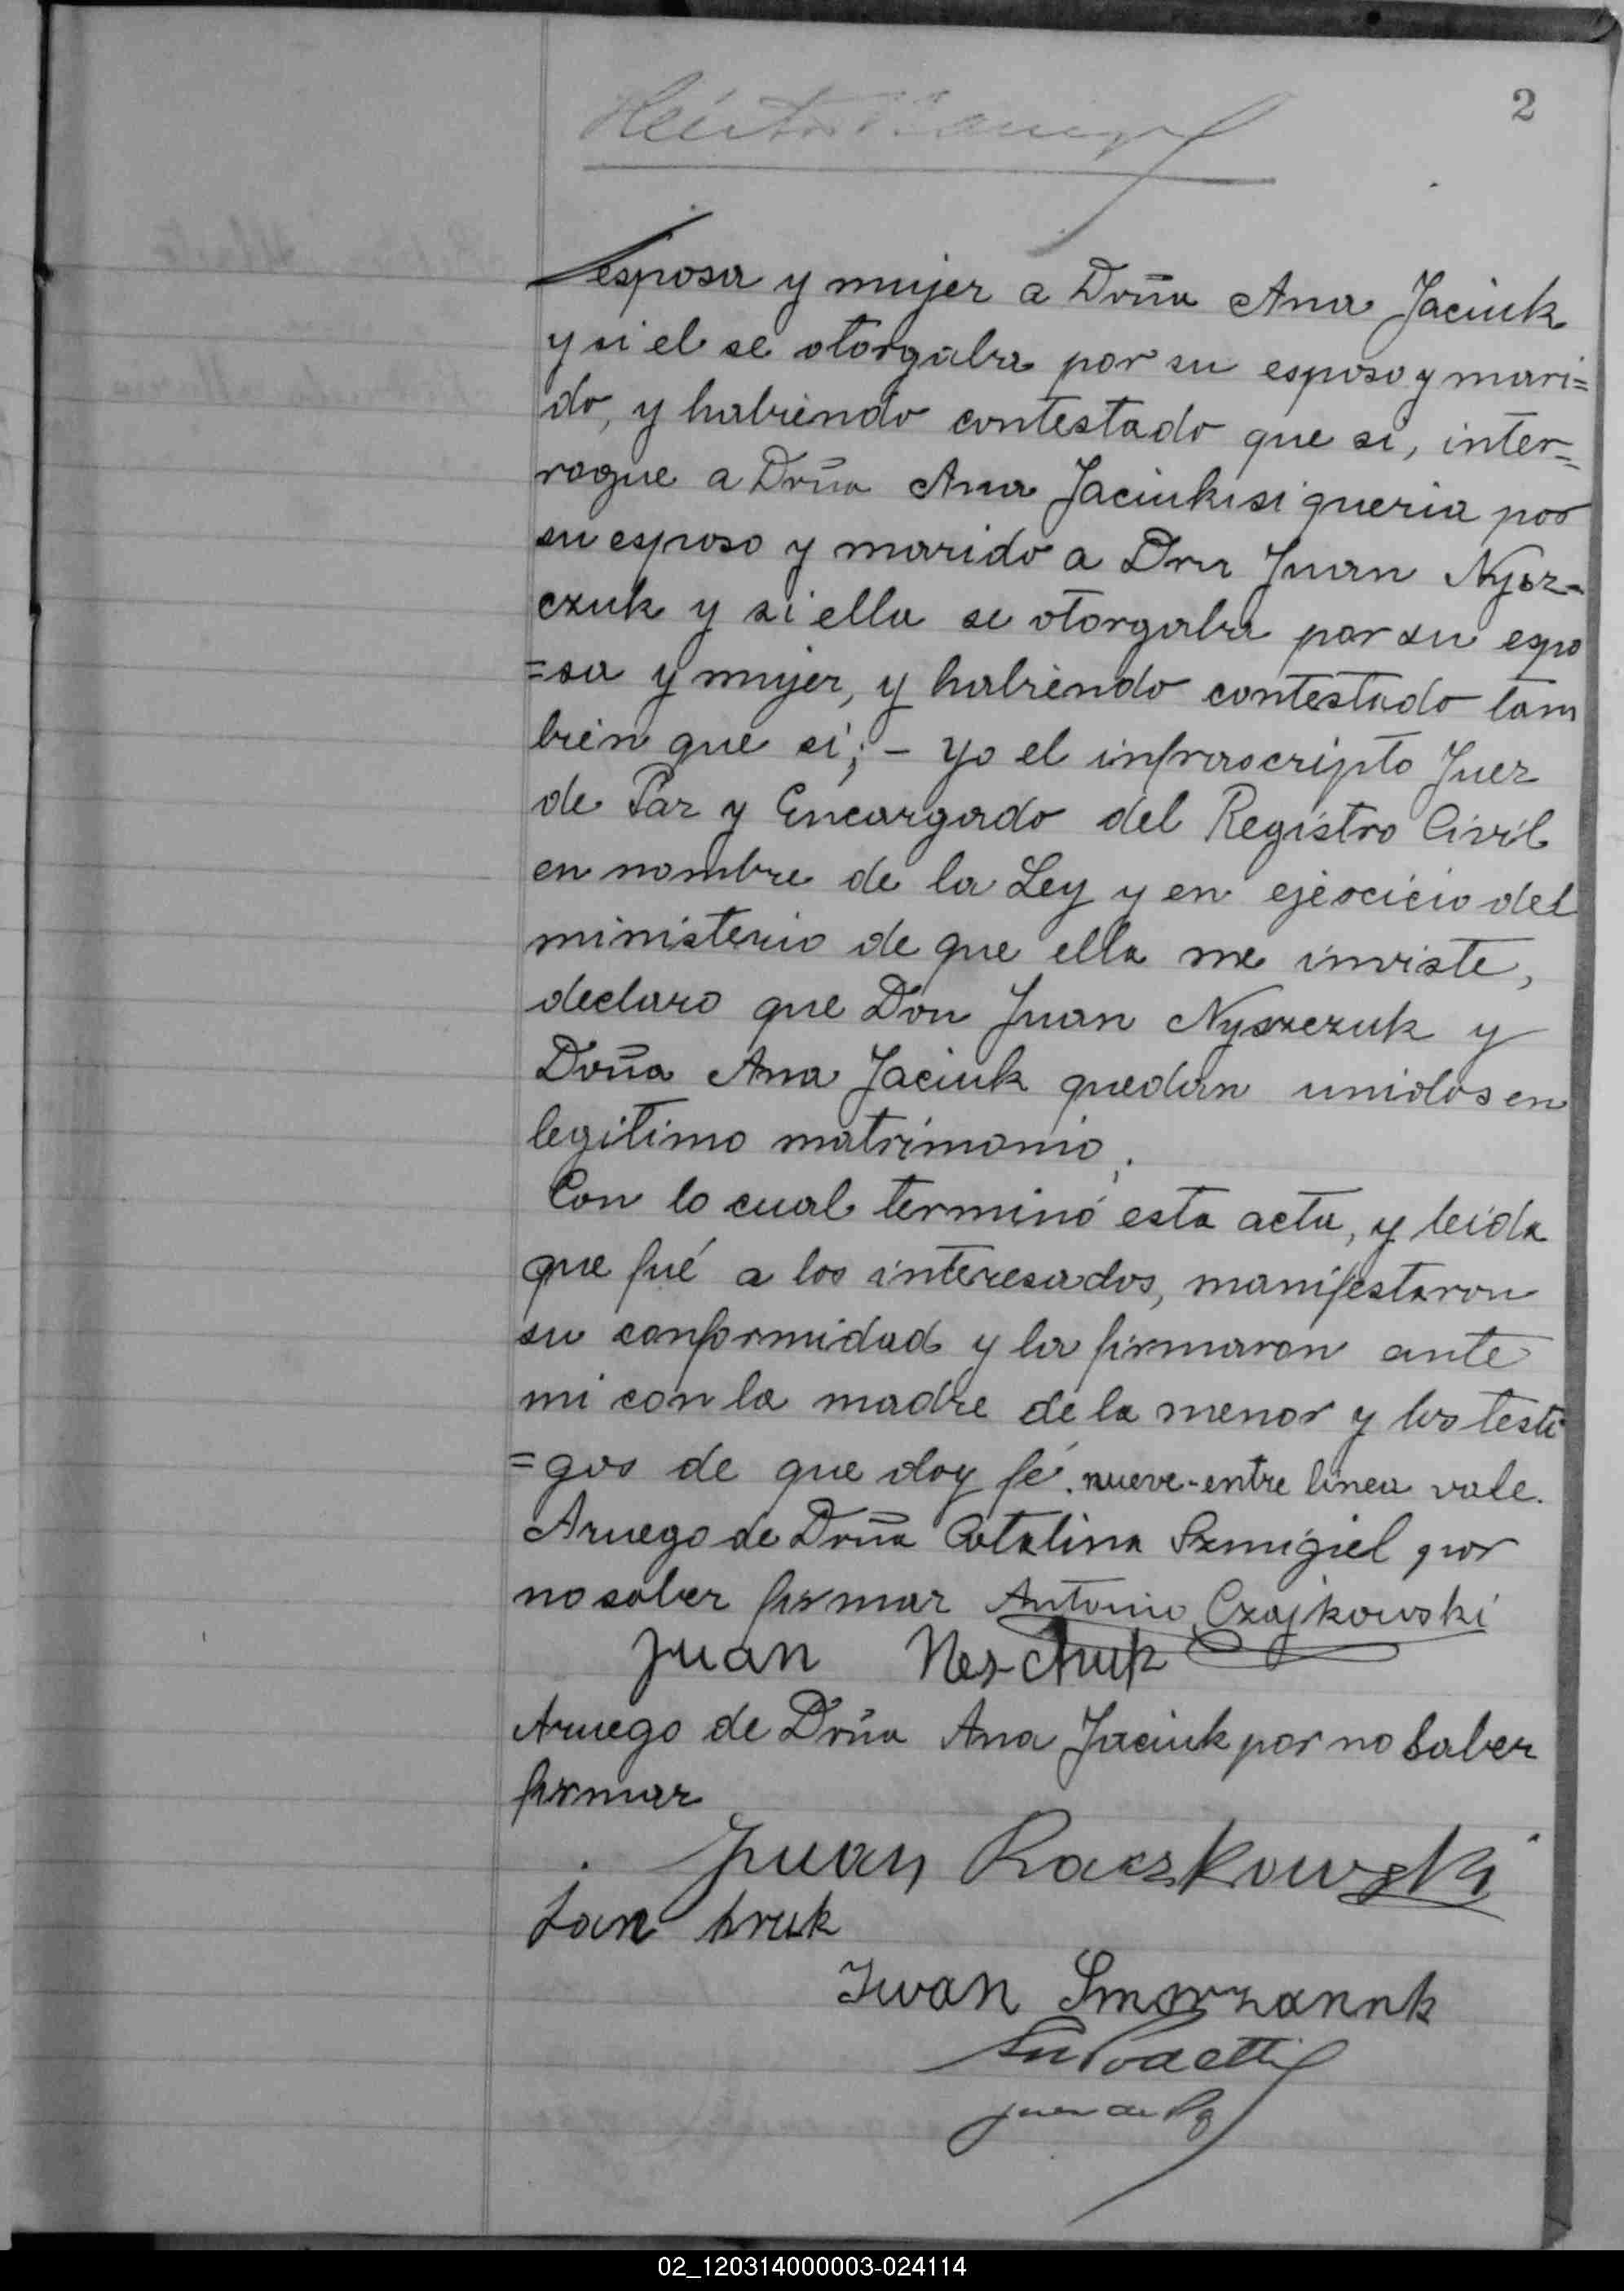 2
esposa y mujer a Doña Ana Jaciuk
y si el se otorgaba por su esposo y mari=
do, y habiendo contestado que si, inter=
rogue a Doña Ana Jaciuk si queria por
su esposo y marido a Don Juan Nysz-
czuk y si ella se otorgaba por su espo
=sa y mujer, y habiendo contestado tam
bien que si; - Yo el infrascripto Juez
de Paz y Encargado del Registro Civil
en nombre de la Ley y en ejercicio del
ministerio de que ella me inviste,
declaro que Don Juan Nyszczuk y
Doña Ana Jaciuk quedan unidos en
legitimo matrimonio.
Con lo cual terminó esta acta, y leida
que fué a los interesados, manifestaron
su conformidad y la firmaron ante
mi con la madre de la menor y los testi
=gos de que doy fé. nueve-entre linea vale.
Aruego de Doña Catalina Szmigiel por
no saber firmar Antonio Czajkowski
Juan Neschuk
Aruego de Doña Ana Jaciuk por no saber
firmar
Juan Raczkowski
Jan
Iwan
Juez de Paz
02_120314000003-024114